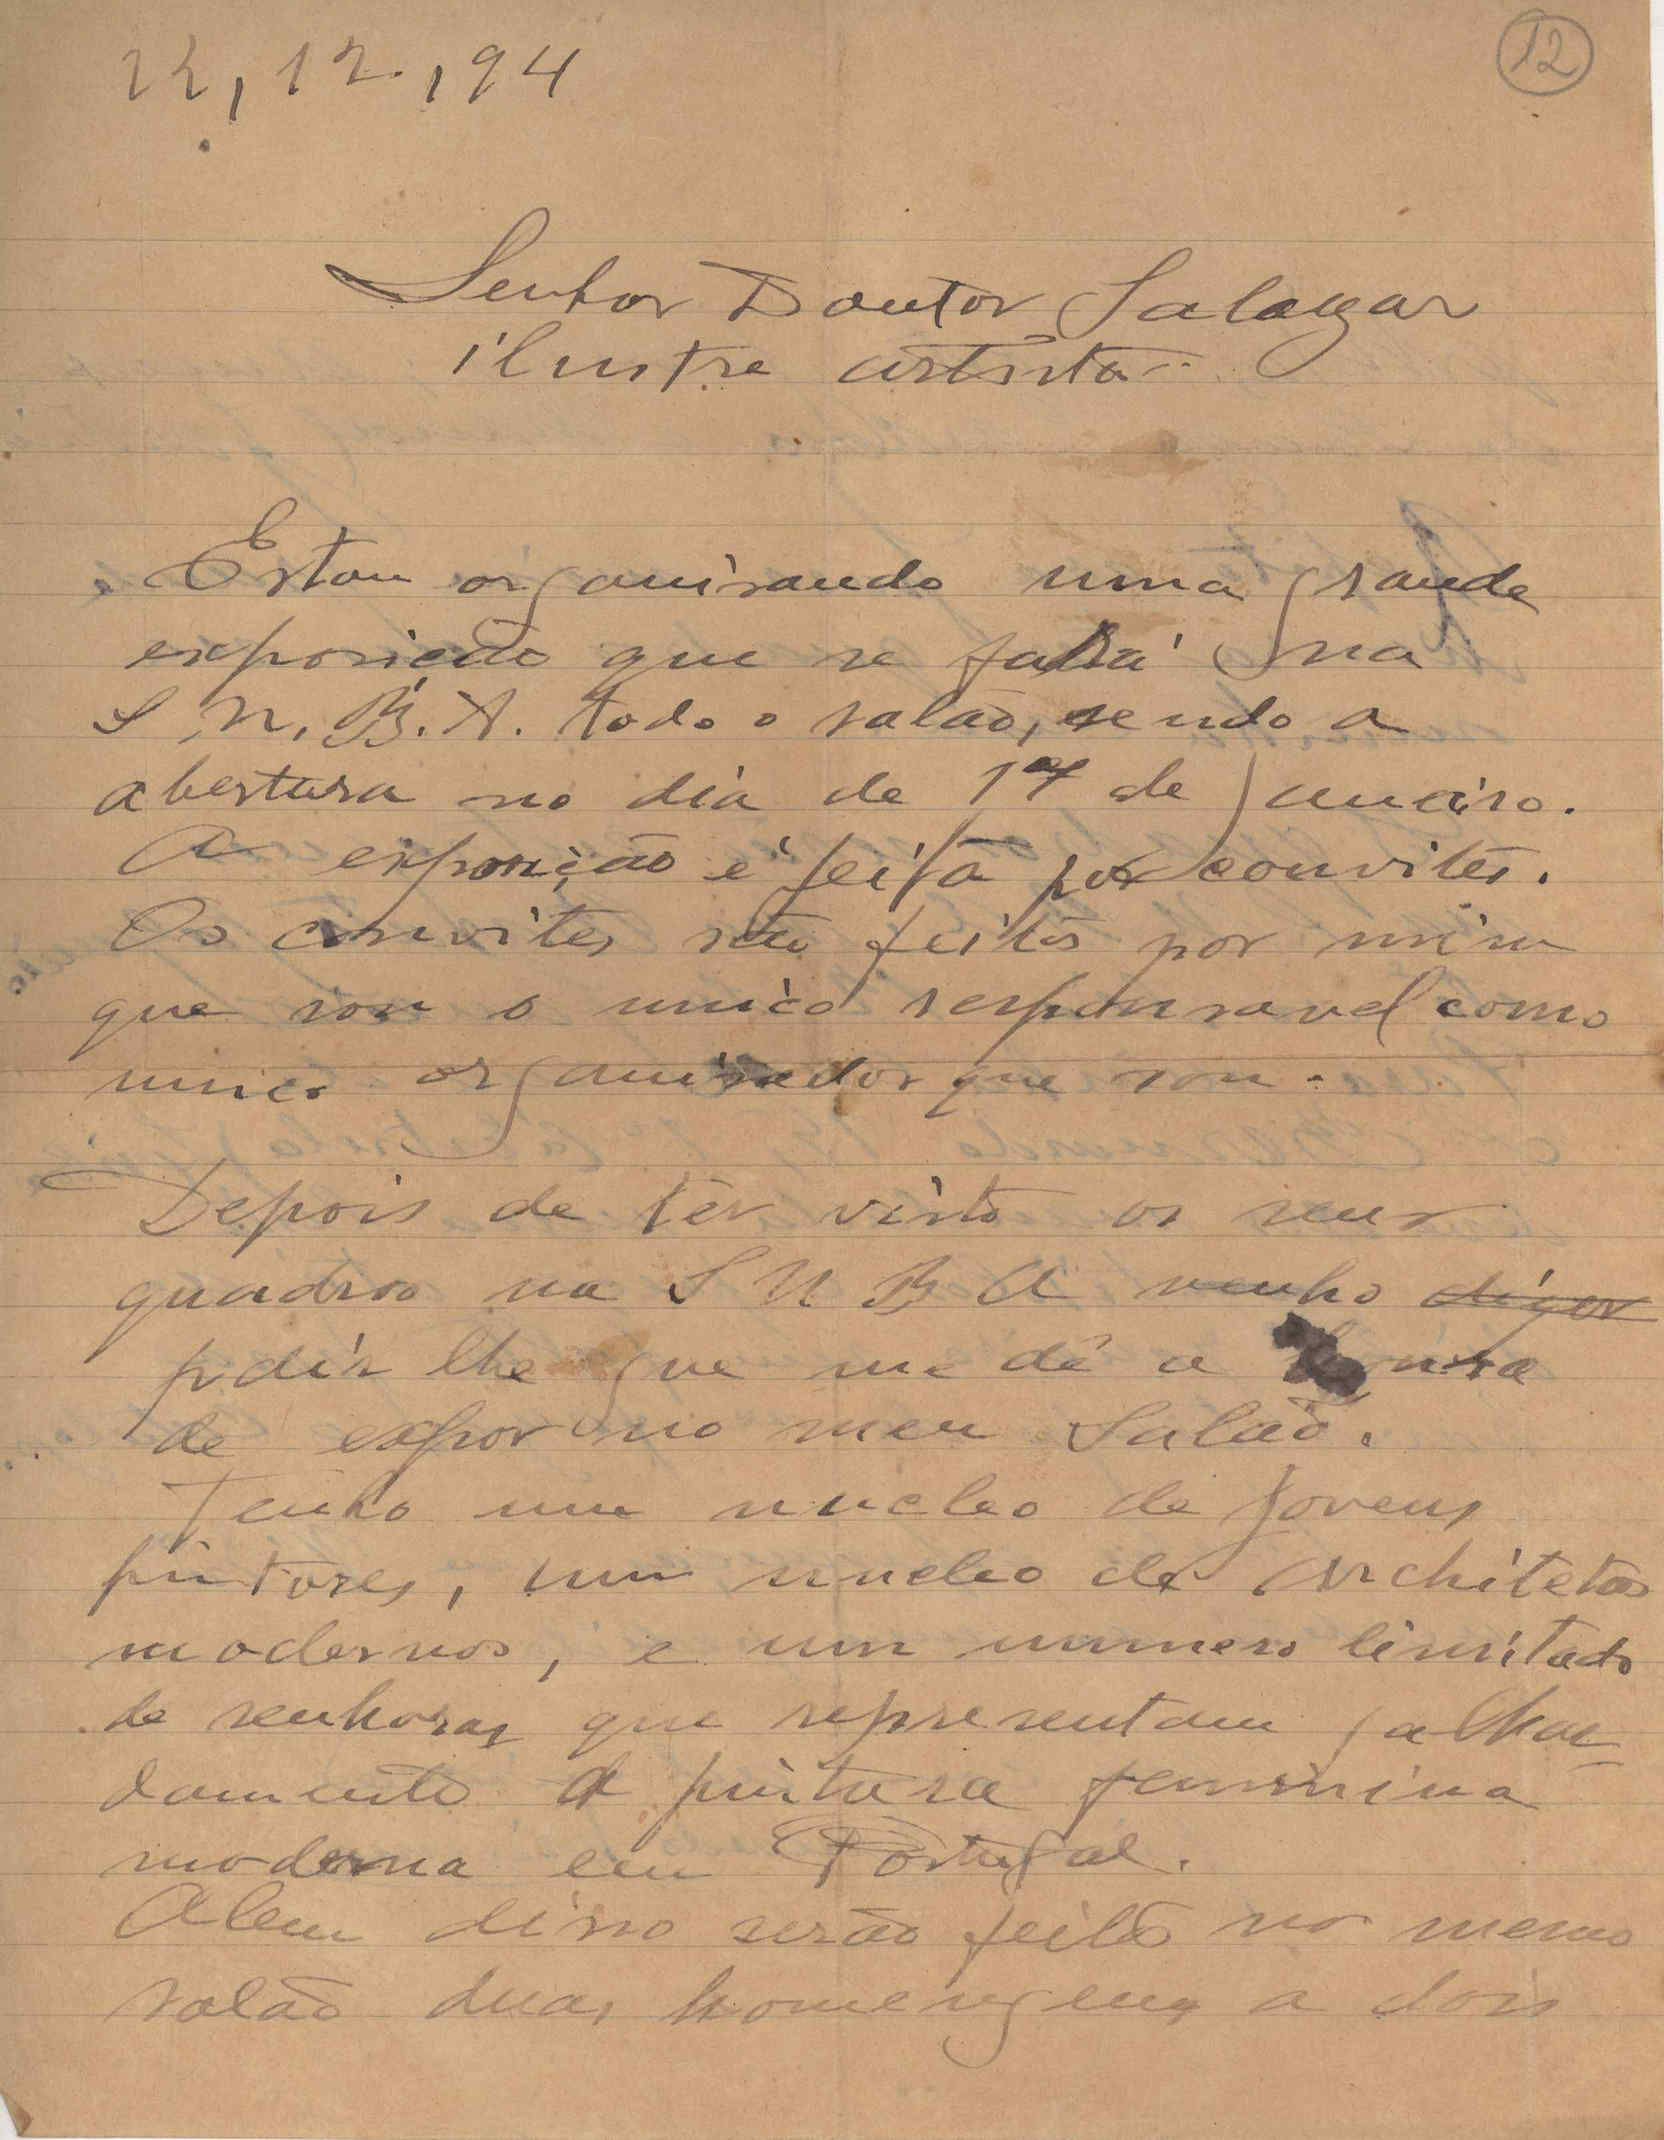 12
, 12., 94
Senhor Doutor Salazar
ilustre artista.
Estou organisando uma grande
exposição que se fará na
S. N. B. A. todo o salão, sendo a
abertura no dia de 17 de Janeiro.
A exposição é feita por convites.
Os convites são feitos por mim
que sou o unico responsavel como
unico organisador que sou.
Depois de ter visto os seus
quadros na S N B A venho
pdir lhe que me dê a honra
de expor no meu Salão.
Tenho um nucleo de Jovens
pintores, um nucleo de Architetos
modernos, e um numero limitado
de senhoras que representam galhar-
damente a pintura feminina
moderna em Portugal.
Alem disso serão feitos no mesmo
salão duas homengens a dois